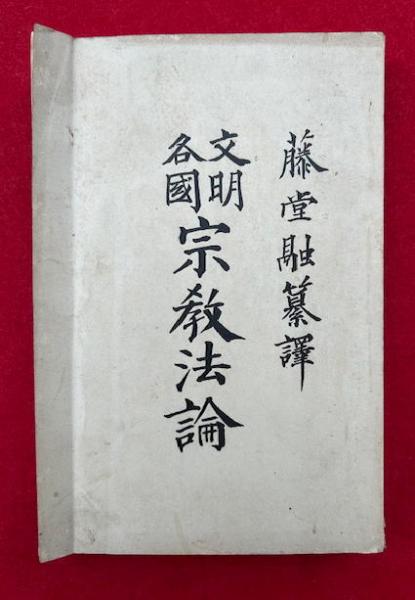 藤堂融纂譯
文明各國宗教法論